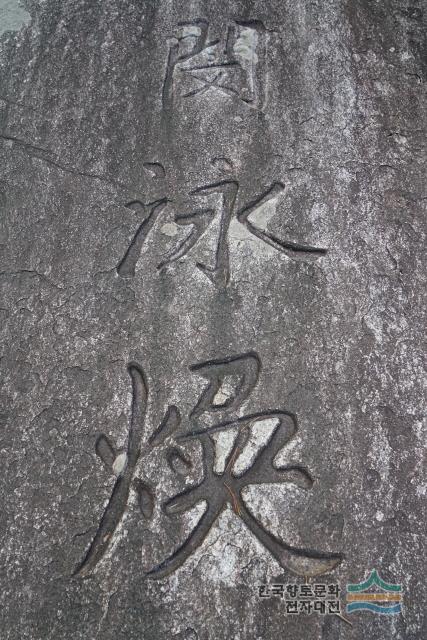 閔泳煥
한국향토문화
전자대전